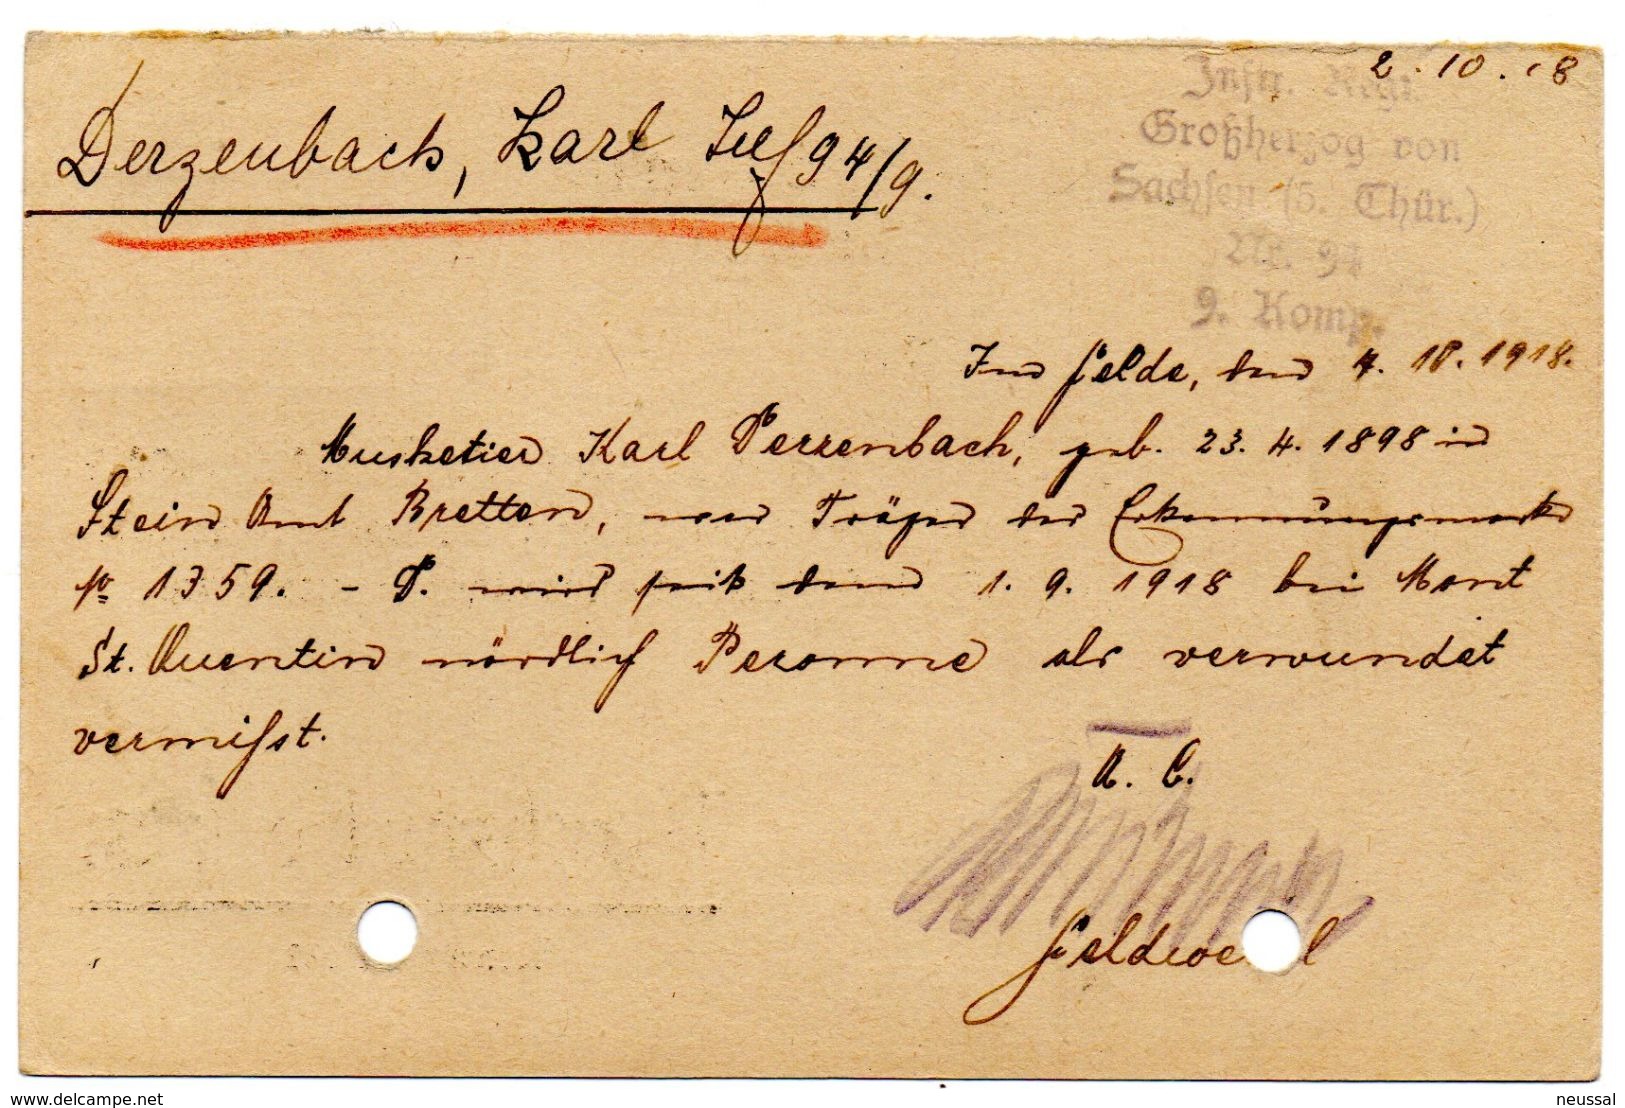 2.10.18
Inftr. Regt.
Großherzog von
Sachsen (5. Thür.)
Nr. 94
9. Komp.
Derzenbach, Karl Inf 94/9.
Im Felde, den 7. 10. 1918.
Musketier Karl Perzenbach, geb. 23. 4. 1898 in
Stein Amt Bretten, war Träger der Erkennungsmarke
No 1359. - P. wird seit dem 1. 9. 1918 bei Mont
St. Quentin nördlich Peronne als verwundet
vermißt.
A. B.
Feldwebel
www.delcampe.net
neussal